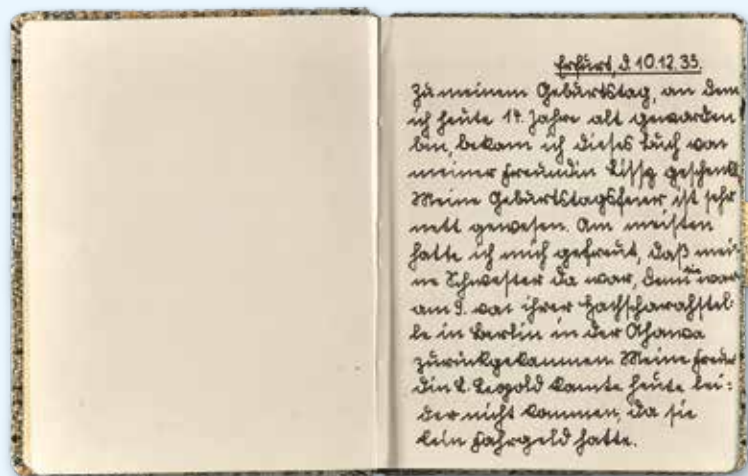 Erfurt, d. 10.12.35.
Zu meinem Geburtstag, an dem
ich heute 14 Jahre alt geworden
bin, bekam ich dieses Buch von
meiner Freundin Lissy geschenkt.
Meine Geburtstagsfeier ist sehr
nett gewesen. Am meisten
hatte ich mich gefreut, daß mei-
ne Schwester da war, denn sie war
am 9. von ihrer Hachscharahstel-
le in Berlin in der Ahawa
zurückgekommen. Meine Freun
din L. Leopold konnte heute lei-
der nicht kommen, da sie
kein Fahrgeld hatte.